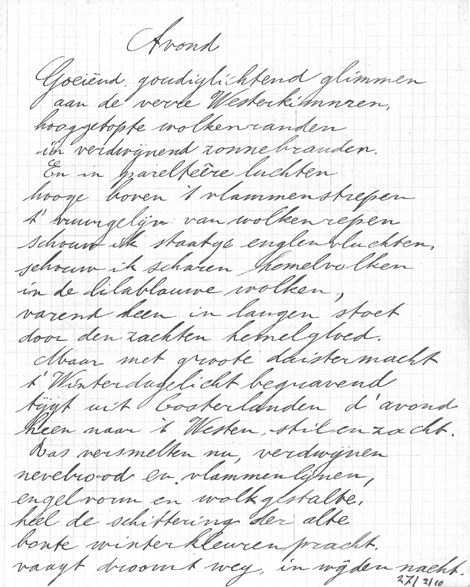 Avond
Gloeiënd, goudiglichtend glimmen
aan de verre Westerkimmen,
hooggetopte wolkenranden
in verdwijnend zonnebranden.
En in pareltêere luchten
hooge boven 't vlammenstrepen
t' vuurgelijn van wolkenrepen
schouw ik staatge englenvluchten,
schouw ik scharen hemelvolken
in de lilablauwe wolken,
varend heen in langen stoet
door den zachten hemelgloed.
Maar met groote duistermacht
t' Winterdagelicht begravend
tijgt uit Oosterlanden d'avond
heen naar 't Westen, stil en zacht.
Ras versmelten nu, verdwijnen
nevelrood en vlammenlijnen,
engelvorm en wolkgestalte,
heel de schittering der alte
bonte winterkleurenpracht.
vaagt droomt weg, in wijden nacht.
27/2/10